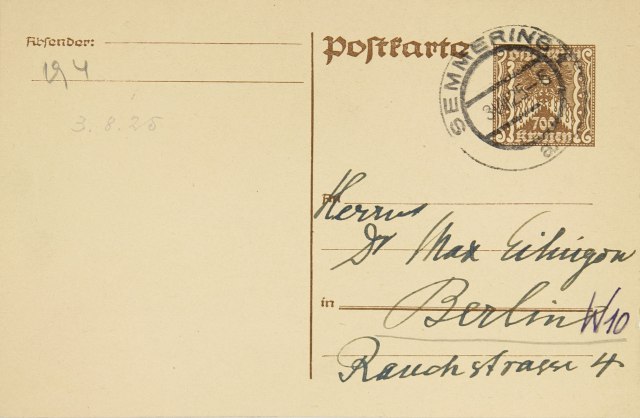 Absender:
Postkarte
SEMMERING
700
Kronen
3.8.25
An
Herrn
Dr Max Eitingon
in
Berlin W10
Rauchstrasse 4